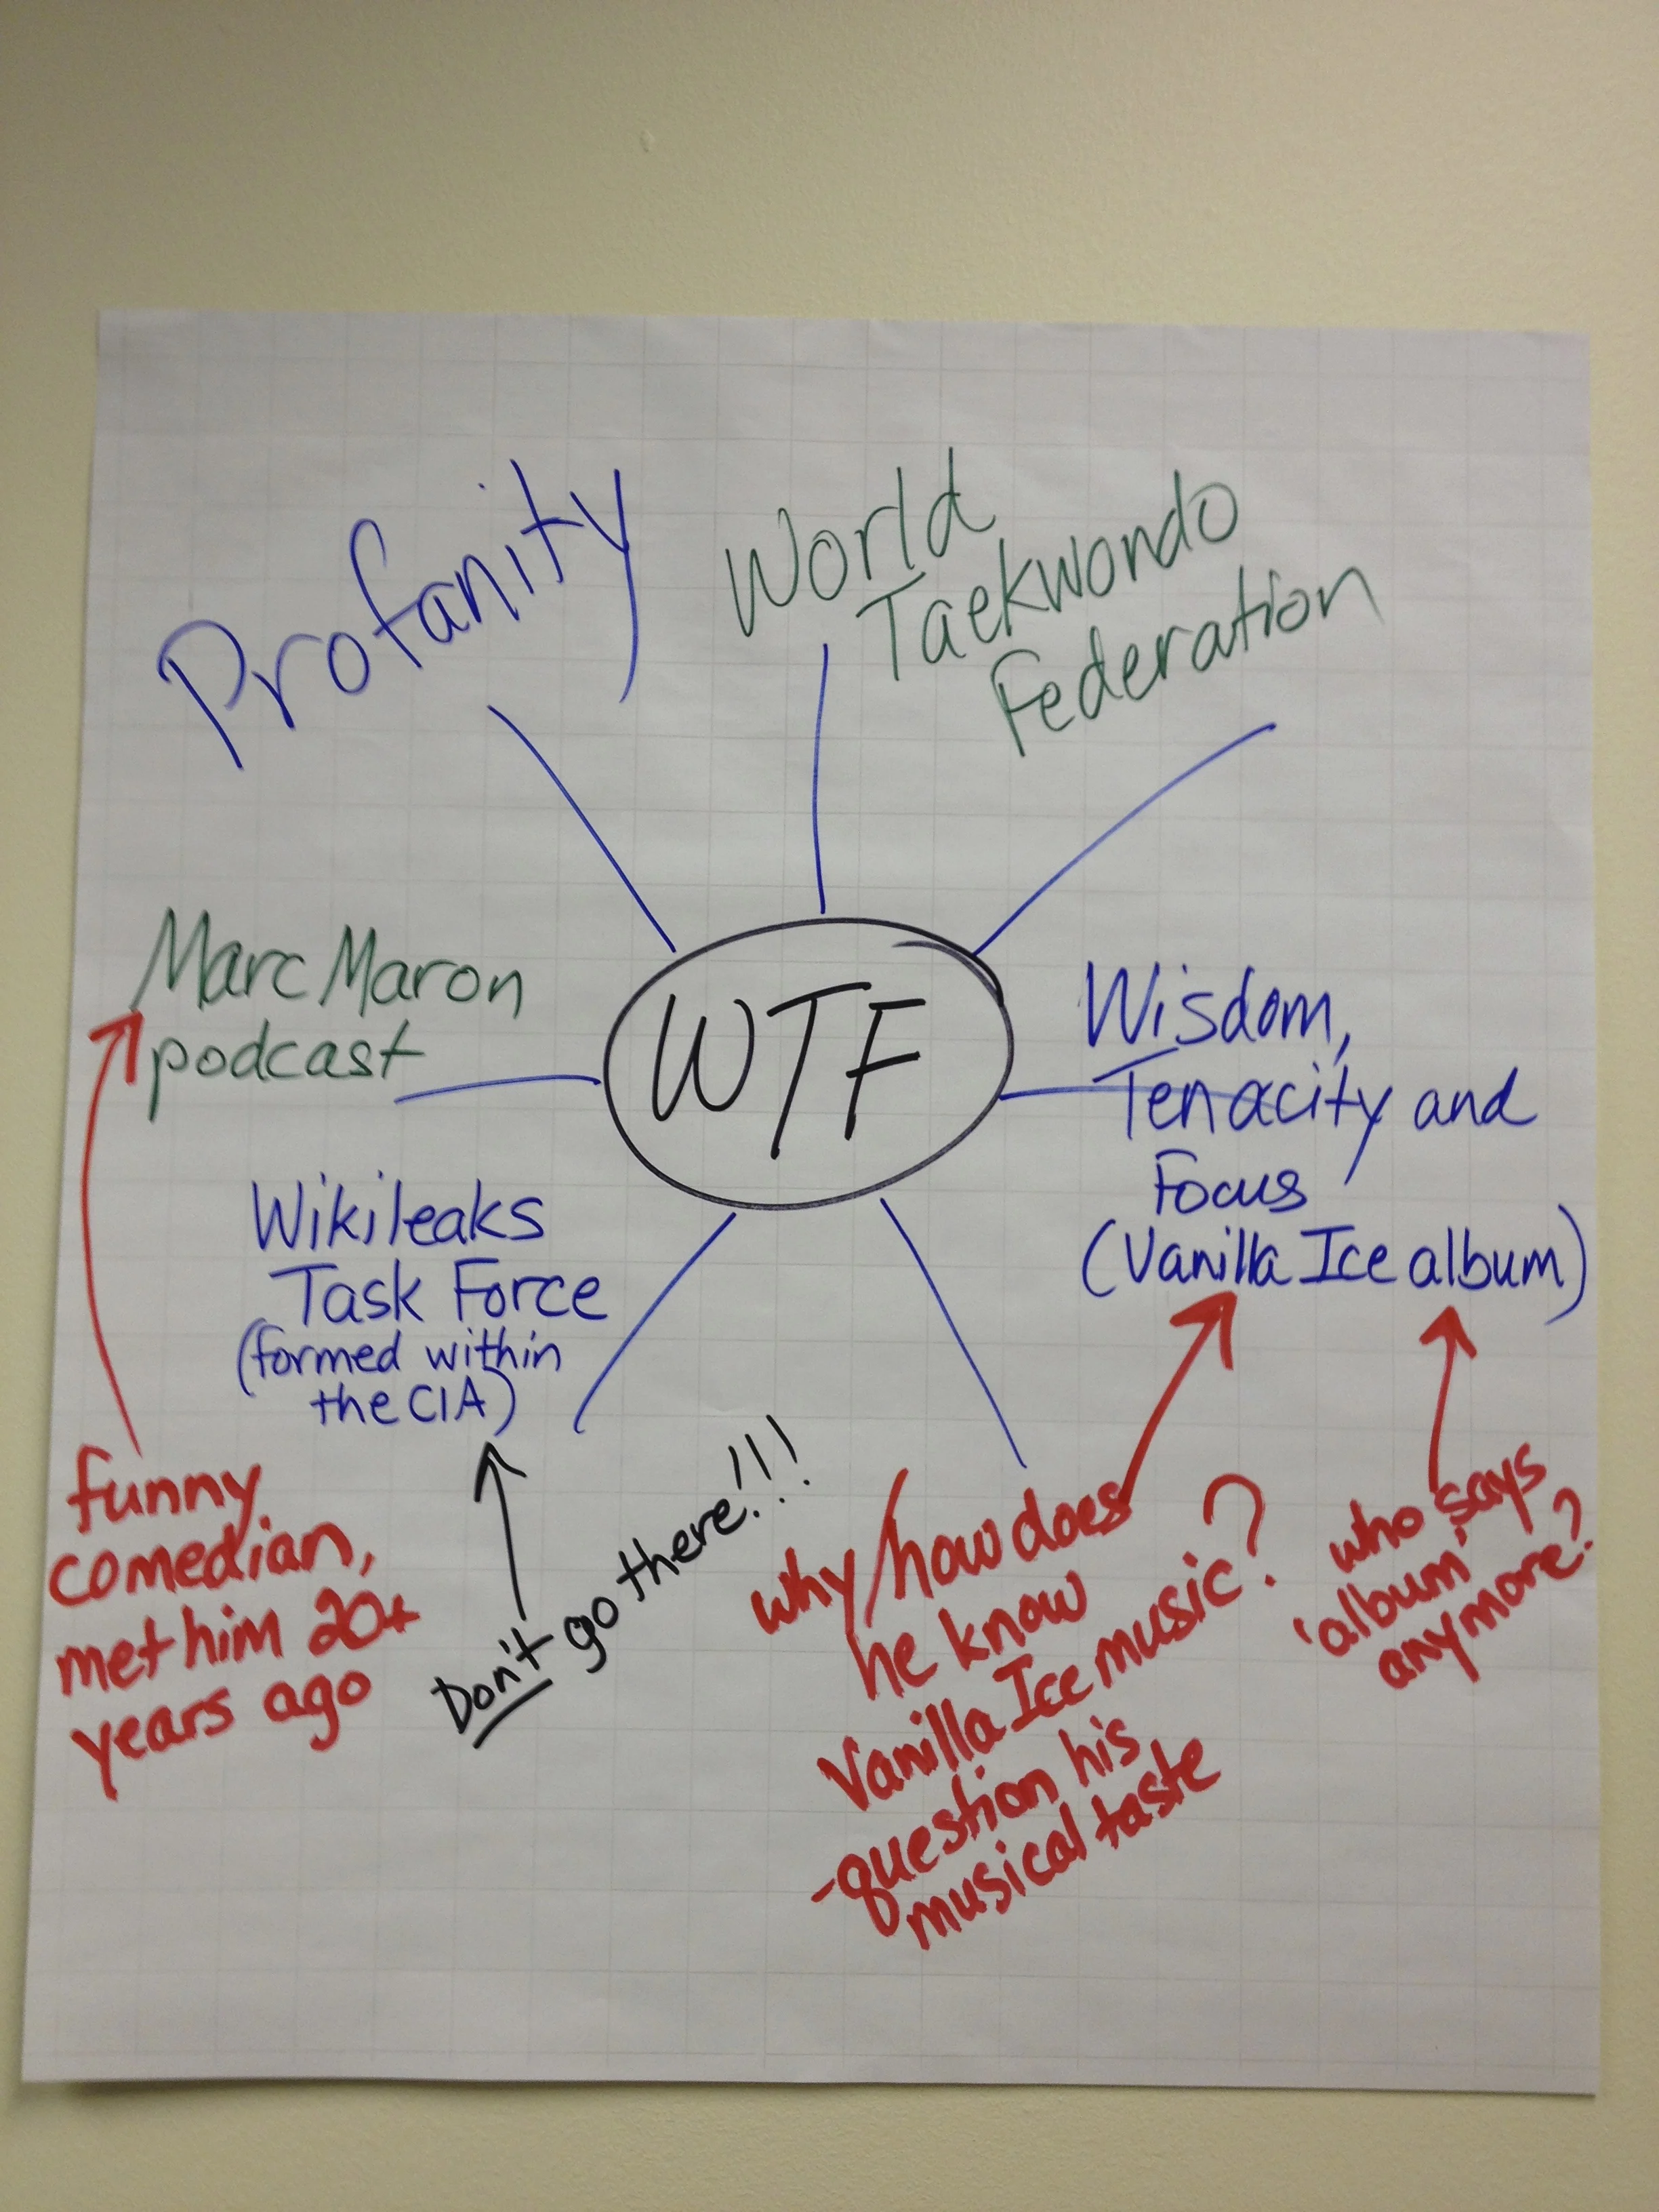 Profanity
World
Taekwondo
Federation
Marc Maron
podcast
WTF
Wisdom,
Tenacity and
Focus
(Vanilla Ice album)
Wikileaks
Task Force
(formed within
the CIA)
funny
comedian,
met him 20+
years ago
Don't go there!!!
why/how does
he know
Vanilla Ice music?
-question his
musical taste
who says
'album'
anymore?